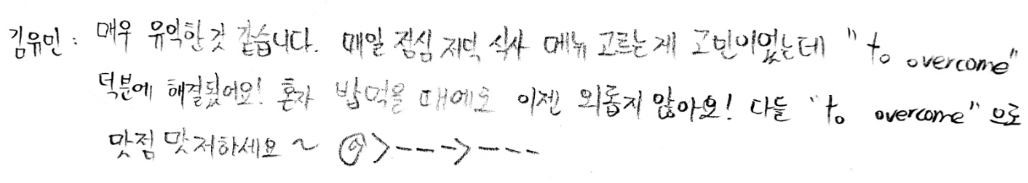 김유민 : 매우 유익한 것 같습니다. 매일 점심 저녁 식사 메뉴 고르는게 고민이었는데 "to overcome"
덕분에 해결됐어요! 혼자 밥먹을 때에도 이젠 외롭지 않아요! 다들 "to overcome"으로
맛점 맛저하세요 ~